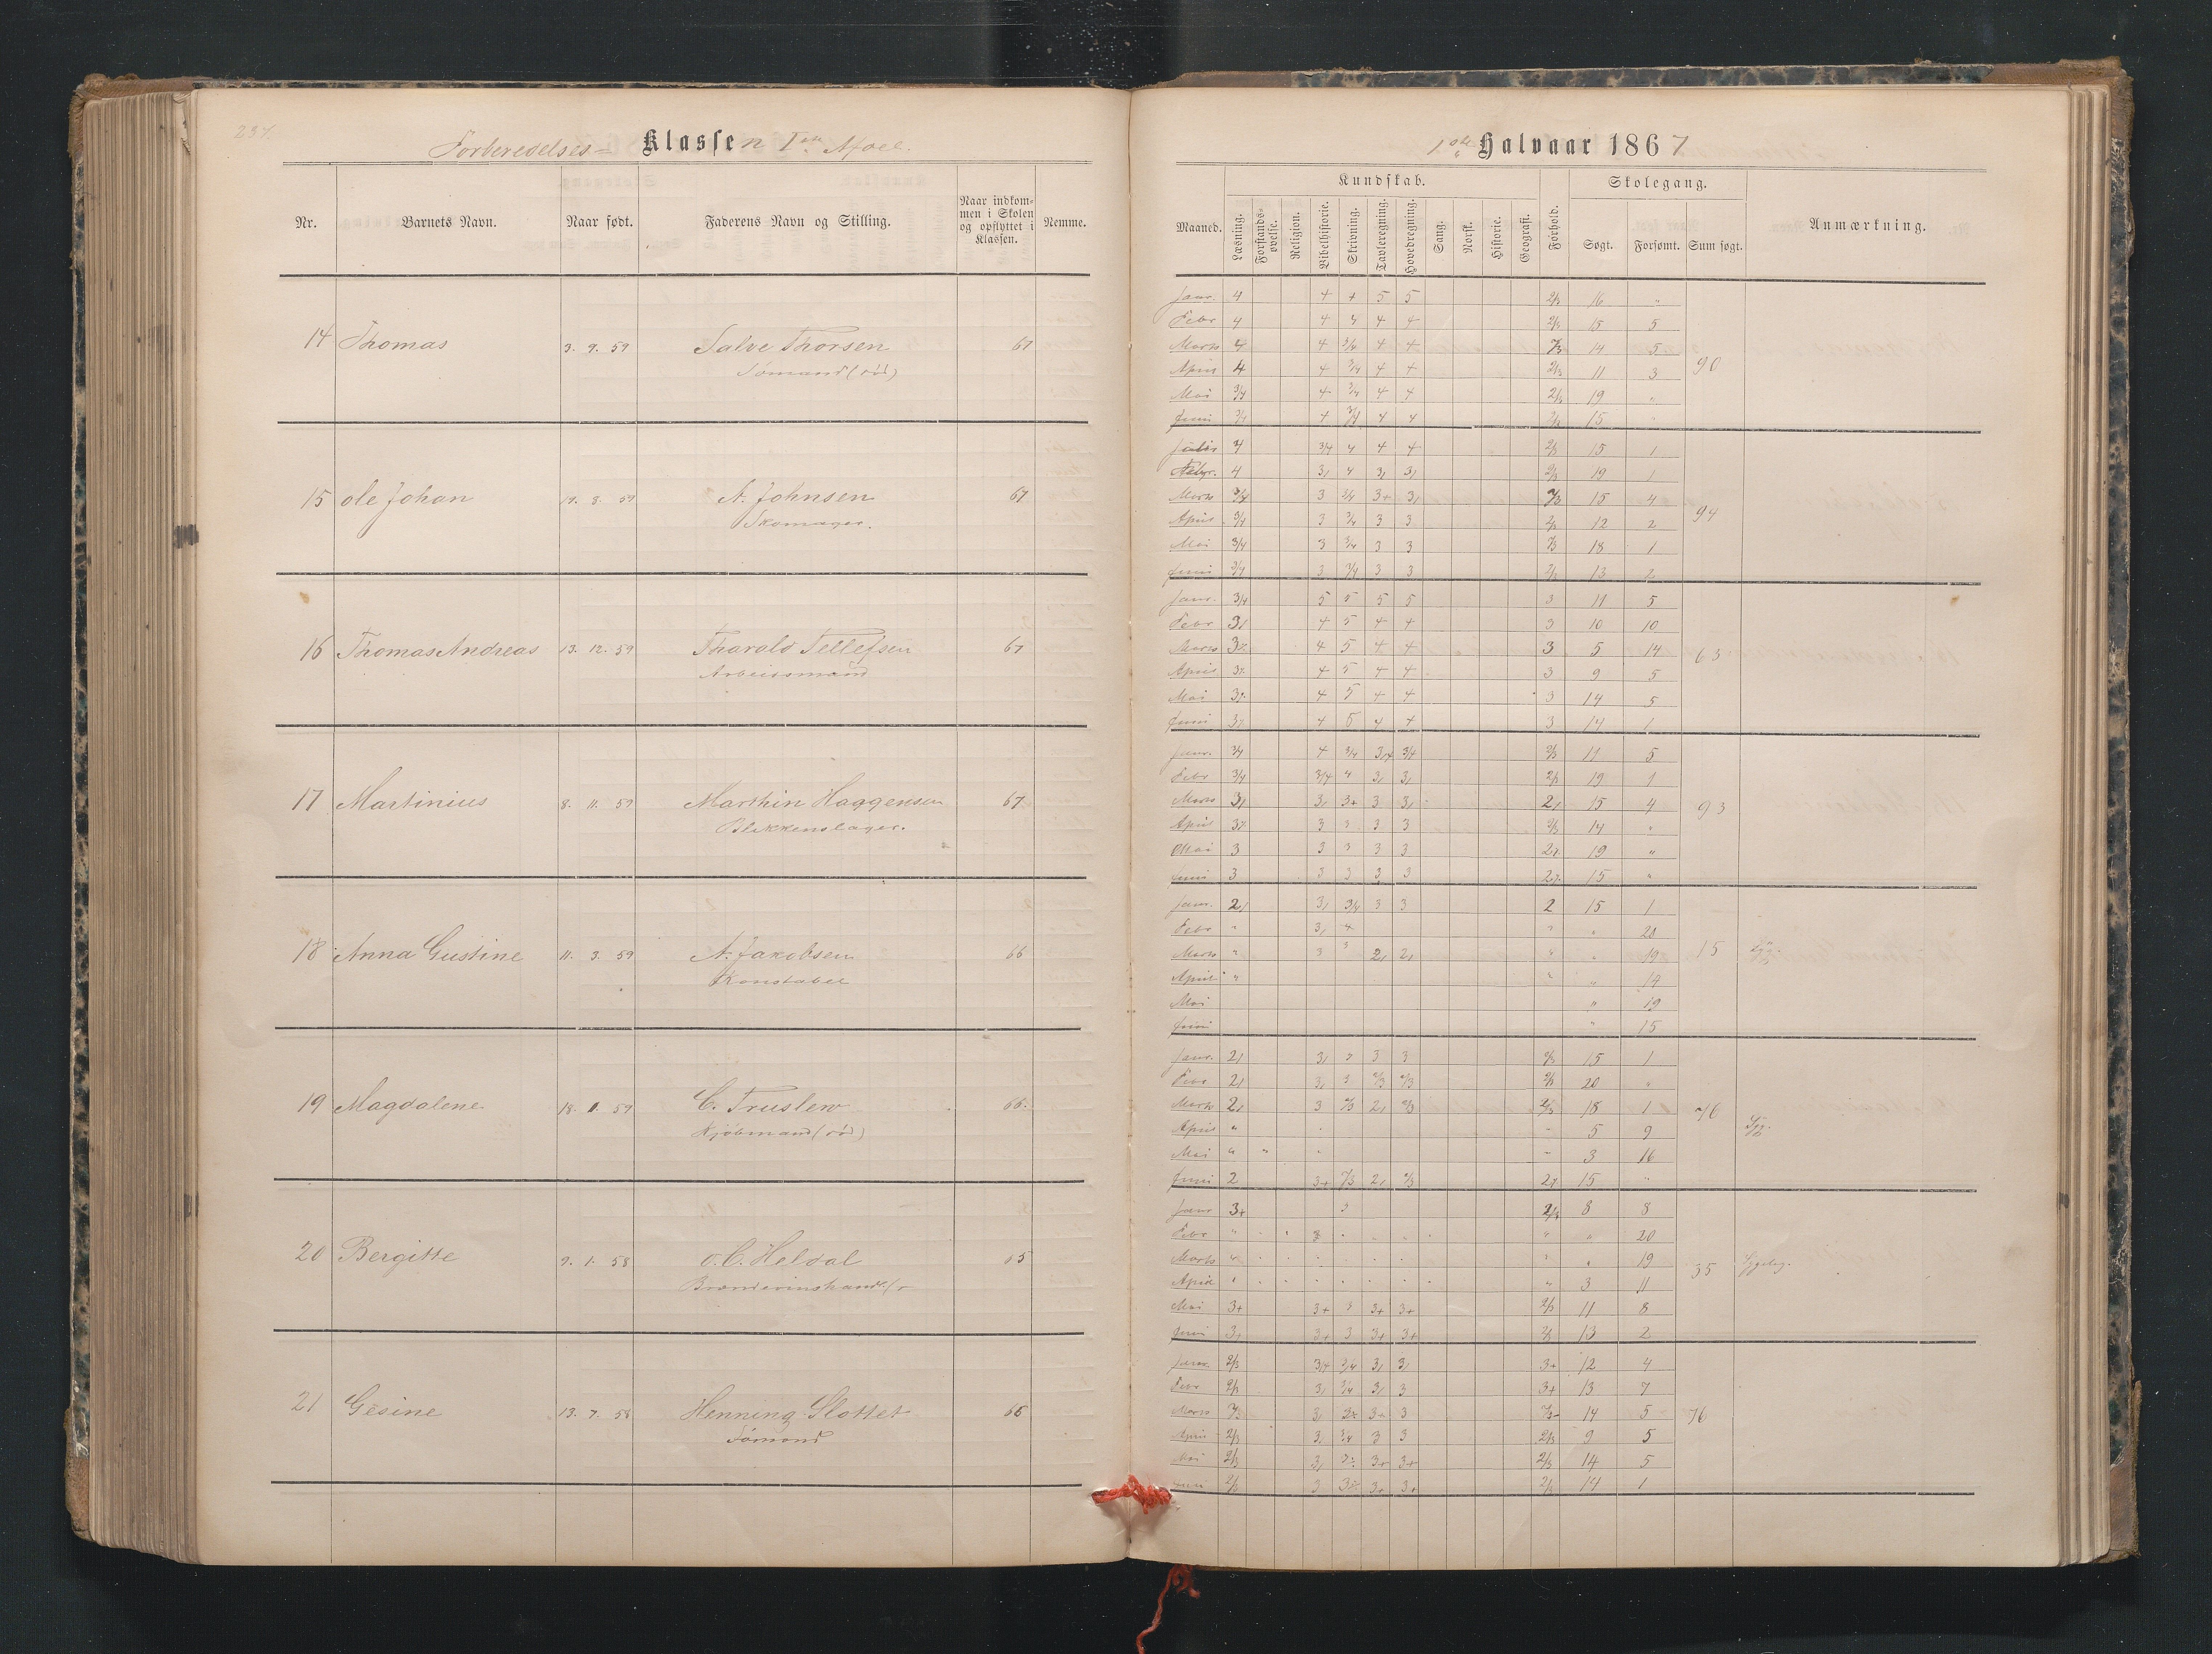 237.
Forberedelses- Klassen I
Nr. Barnets Navn. Naar født. Faderens Navn og Stilling. Naar indkommen i Skolen og opflyttet i Klassen. Nemme.
14 Thomas 3. 9. 59 Salve Thorsen 67
Sømand (død)
15 Ole Johan 19. 8. 59 A. Johnsen 67
Skomager.
16 Thomas Andreas 13. 12. 59 Tharald Tellefsen 67
Arbeidsmand
17 Martinius 8. 11. 59 Marthin Haggensen 67
Blikkenslager.
18 Anna Gustine 11. 3. 59 A. Jakobsen 66
Konstabel
19 Magdalene 18. 1. 59 C. Truslew 66.
Kjøbmand (død)
20 Bergitte 9. 1. 58 O. C. Heldal 65
21 Gesine 13. 7. 58 Henning Slottet 66
Sømand
1ste Halvaar 1867
Kundskab. Skolegang.
Maaned. Læsning. Forstands-øvelse. Religion. Bibelhistorie. Skrivning. Tavleregning. Hovedregning. Sang. Norsk. Historie. Geografi. Forhold. Søgt. Forsømt. Sum søgt. Anmærkning.
Janr. 4 4 4 5 5 2/3 16 "
Febr 4 4 4 4 4 2/3 15 5
Marts 4 4 3/4 4 4 2/3 14 5
April 4 4 3/4 4 4 2/3 11 3 90
Mai 3/4 4 3/4 4 4 2/3 19 "
Juni 3/4 4 3/4 4 4 2/3 15 "
4 3/4 4 4 4 2/3 15 1
4 3, 4 3, 3, 2/3 19 1
Marts 3/4 3 3/4 3+ 3, 2/3 15 4
April 3/4 3 3/4 3 3 2/3 12 2 94
Mai 3/4 3 3/4 3 3 2/3 18 1
Juni 3/4 3 3/4 3 3 2/3 13 2
Janr. 3/4 5 5 5 5 3 11 5
Febr 3, 4 5 4 4 3 10 10
Marts 4 5 4 4 3 5 14 63
April 4 5 4 4 3 9 5
Mai 4 5 4 4 3 14 5
Juni 4 5 4 4 3 14 1
Janr. 3/4 4 3/4 3/4 3/4 2/3 11 5
Febr 3/4 3/4 4 3, 3, 2/3 19 1
Marts 3, 3, 3+ 3 3, 2, 15 4 93
April 3 3 3 3 2/3 14 "
Mai 3 3 3 3 3 19 "
Juni 3 3 3 3 3 15 "
Janr. 2, 3, 3/4 3 3 2 15 1
Febr " 3, 4 " " 20
Marts " 3 3 2, 2, " " 19 15
April " " " 14
Mai " 19
Juni " 15
Janr. 2, 3, 3 3 3 2/3 15 1
Febr 2, 3, 3 2/3 2/3 2/3 20 "
Marts 2, 3 2/3 2, 2/3 2/3 18 1 76
April " " 5 9
Mai " " " 3 16
Juni 2 3+ 2/3 2, 2/3 15 "
Janr 3+ 3 2/3 8 8
Febr " " " 20
Marts " " " 19 35
April " " 3 11
Mai 3+ 3+ 3 3+ 3+ 2/3 11 8
Juni 3+ 3+ 3 3+ 3+ 2/3 13 2
Janr. 2/3 3/4 3/4 3, 3, 3+ 12 4
Febr 2/3 3, 3/4 3, 3 3+ 13 7
Marts 3, 3+ 3 14 5 76
April 2/3 3, 3/4 3 3 2/3 9 5
Mai 2/3 3, 3+ 3+ 2/3 14 5
Juni 2/3 3 3+ 3+ 2/3 14 1